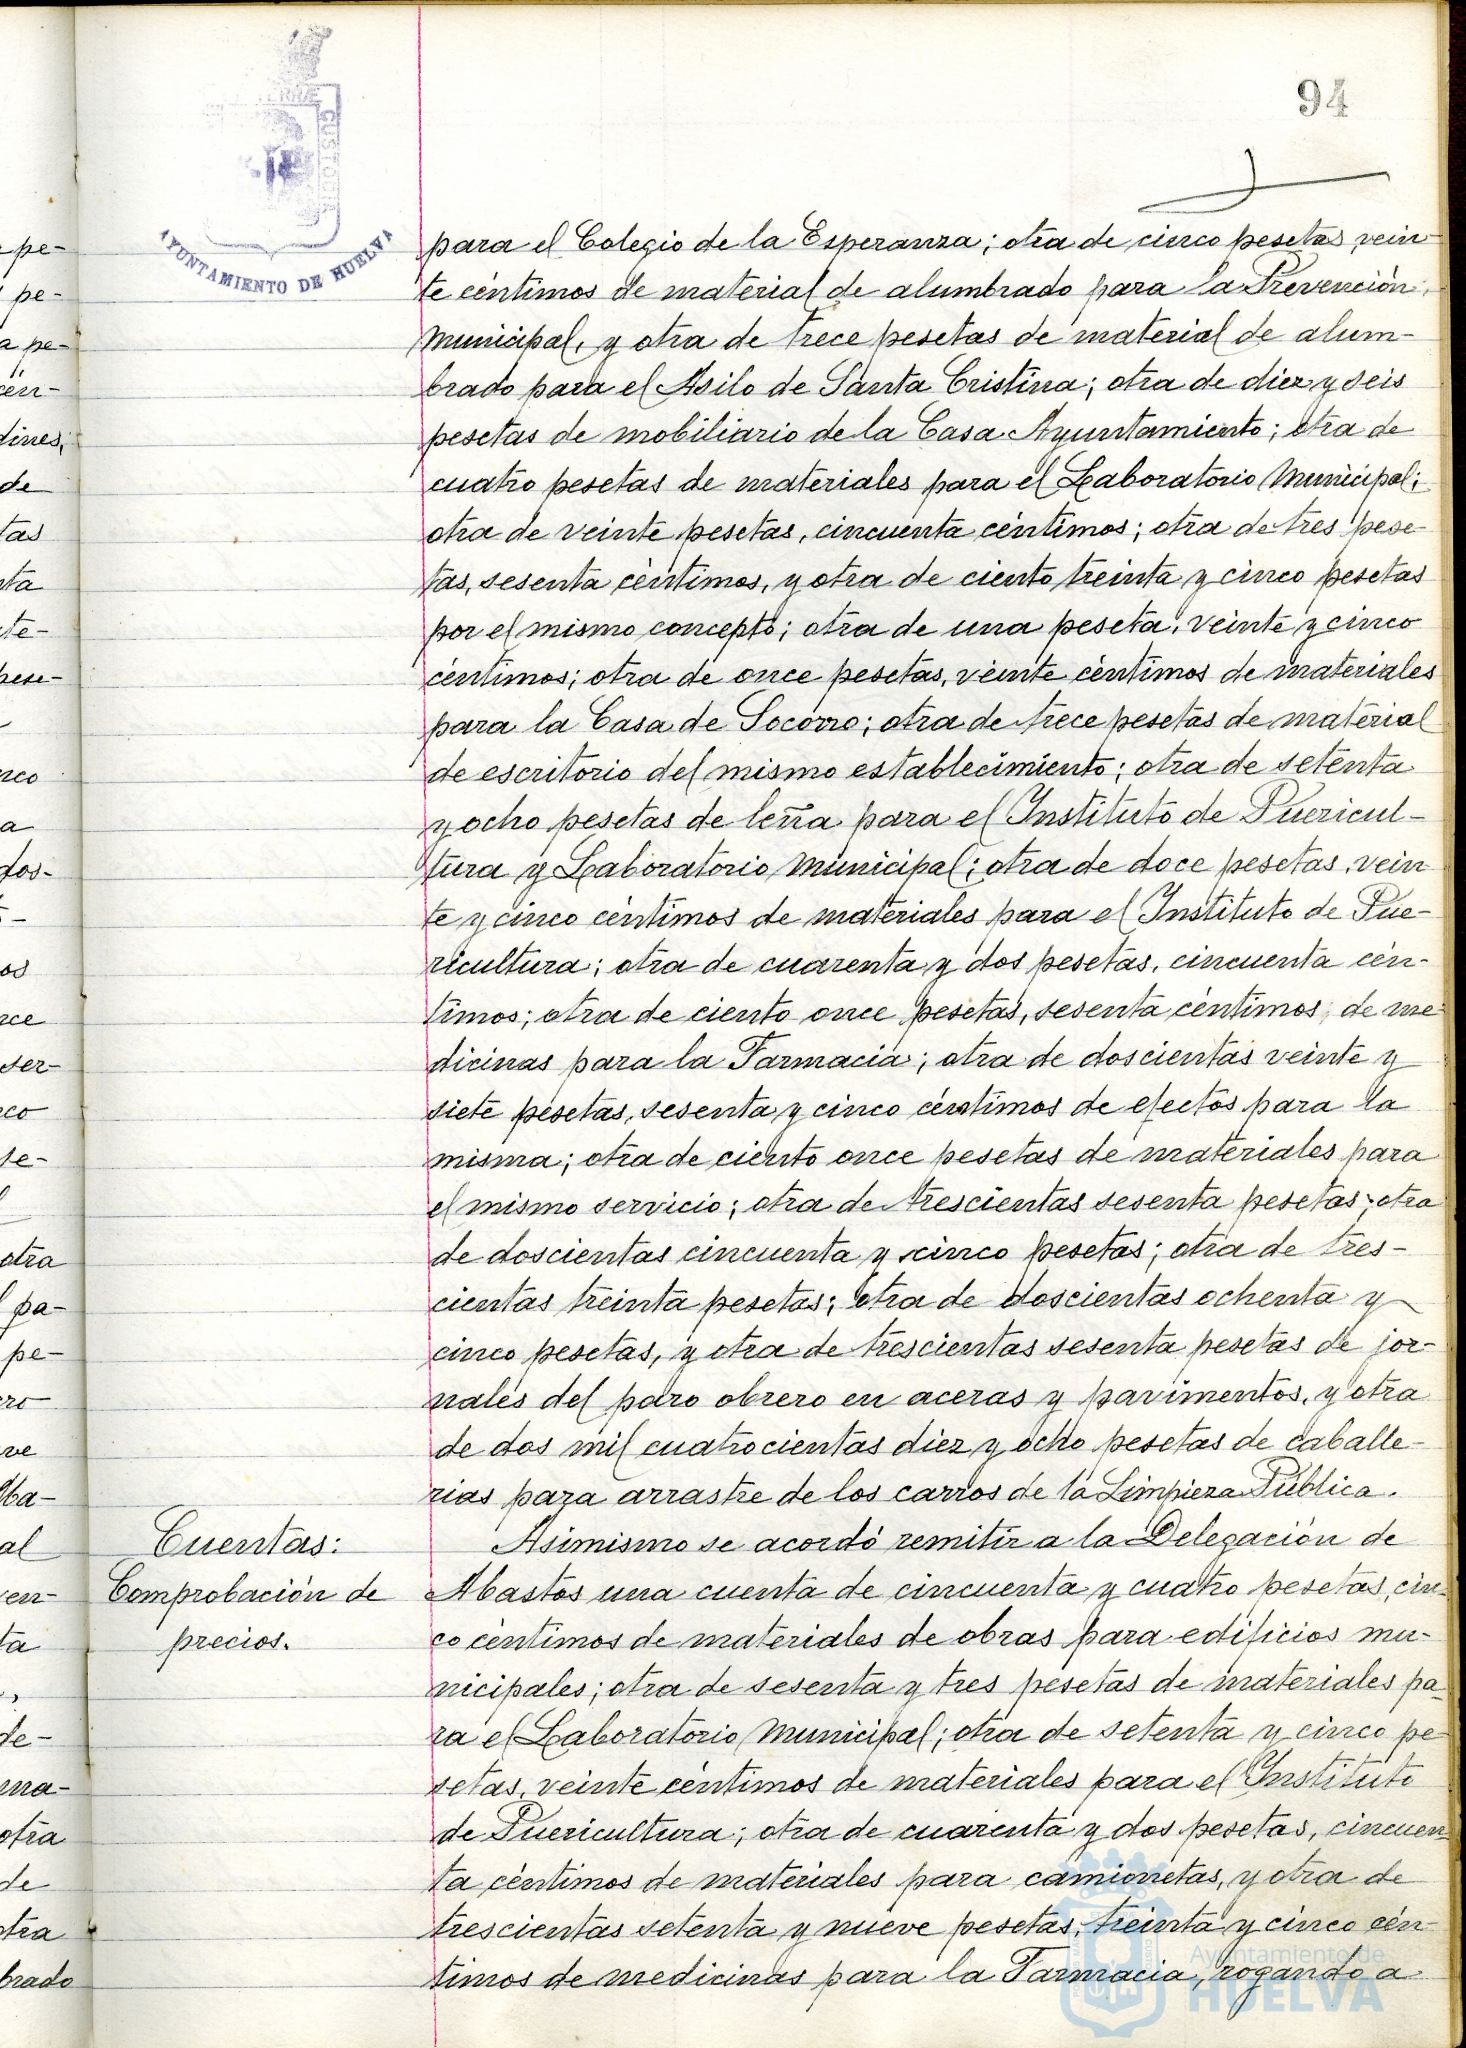 94
AYUNTAMIENTO DE HUELVA
para el Colegio de la Esperanza; otra de cinco pesetas vein-
te céntimos de material de alumbrado para la Prevención
Municipal, y otra de trece pesetas de material de alum-
brado para el Asilo de Santa Cristina; otra de diez y seis
pesetas de mobiliario de la Casa Ayuntamiento; otra de
cuatro pesetas de materiales para el Laboratorio Municipal;
otra de veinte pesetas, cincuenta céntimos; otra de tres pese-
tas, sesenta céntimos, y otra de ciento treinta y cinco pesetas
por el mismo concepto; otra de una peseta, veinte y cinco
céntimos; otra de once pesetas, veinte céntimos de materiales
para la Casa de Socorro; otra de trece pesetas de material
de escritorio del mismo establecimiento; otra de setenta
y ocho pesetas de leña para el Instituto de Puericul-
tura y Laboratorio Municipal; otra de doce pesetas, vein
te y cinco céntimos de materiales para el Instituto de Pue-
ricultura; otra de cuarenta y dos pesetas, cincuenta cén-
timos; otra de ciento once pesetas, sesenta céntimos, de me
dicinas para la Farmacia; otra de doscientas veinte y
siete pesetas, sesenta y cinco céntimos de efectos para la
misma; otra de ciento once pesetas de materiales para
el mismo servicio; otra de trescientas sesenta pesetas; otra
de doscientas cincuenta y cinco pesetas; otra de tres-
cientas treinta pesetas; otra de doscientas ochenta y
cinco pesetas, y otra de trescientas sesenta pesetas de jor-
nales del paro obrero en aceras y pavimentos, y otra
de dos mil cuatrocientas diez y ocho pesetas de caballe-
rias para arrastre de los carros de la Limpieza Pública.
Cuentas:
Comprobación de
precios.
Asimismo se acordó remitir a la Delegación de
Abastos una cuenta de cincuenta y cuatro pesetas, cin-
co céntimos de materiales de obras para edificios mu-
nicipales; otra de sesenta y tres pesetas de materiales pa-
ra el Laboratorio Municipal; otra de setenta y cinco pe-
setas, veinte céntimos de materiales para el Instituto
de Puericultura; otra de cuarenta y dos pesetas, cincuen
ta céntimos de materiales para camionetas, y otra de
trescientas setenta y nueve pesetas, treinta y cinco cén-
timos de medicinas para la Farmacia, rogando a
Ayuntamiento de
HUELVA